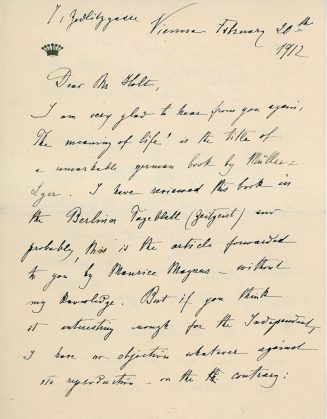 7, Zedlitzgasse Vienna February 20th
1912
Dear Mr Holt,
I am very glad to hear from you again,
The meaning of life' is the title of
a remarkable german book by Müller=
Lyer. I have reviewed this book in
the Berliner Tageblatt (Zeitgeist) and
probably, this is the article forwarded
to you by Maurice Magnus – without
my knowledge. But if you think
it interesting enough for the Independent,
I have no objection whatever against
its reproduction – on the contrary;